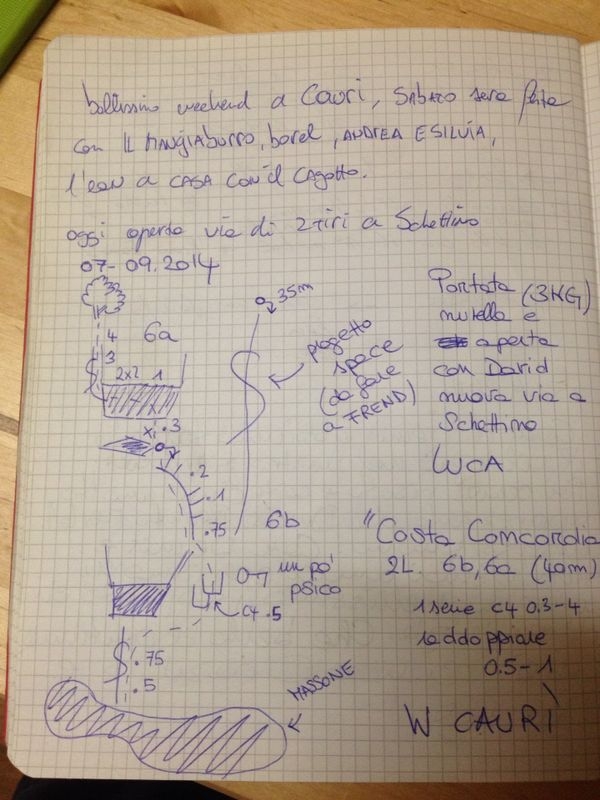 bellissimo weekend a Cauri, SABATO sera festa
con IL MANGIABURRO, borel, ANDREA E SILVIA,
a CASA con il CAGOTTO.
oggi aperto via di 2 tiri a Schettino
07-09.2014
35m
4
6a
3
2x2 1
.3
.2
.1
.75
6b
progetto
space
(da fare
a FREND)
Portata (3KG)
nutella e
aperta
con David
nuova via a
Schettino
LUCA
"Costa Comcordia
2L. 6b, 6a (40m)
1 serie c4 0.3-4
raddoppiare
0.5-1
un po'
psico
c4 .5
.75
.5
MASSONE
W CAURI